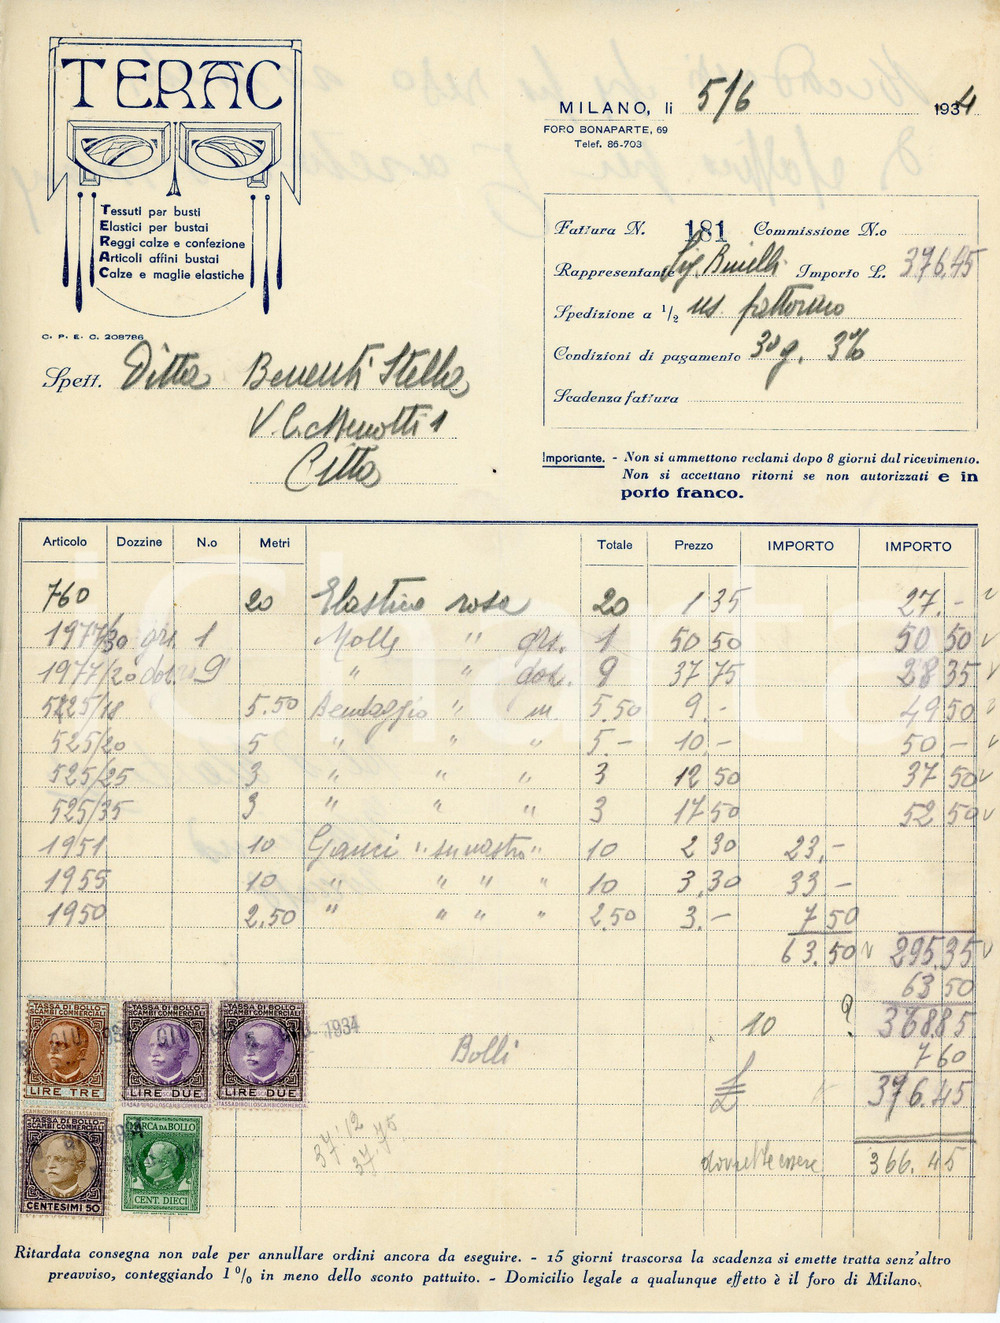 TERAC
Tessuti per busti
Elastici per bustai
Reggi calze e confezione
Articoli affini bustai
Calze e maglie elastiche
C. P. E. C. 208786
MILANO, li 5/6 1934
FORO BONAPARTE, 69
Telef. 86-703
Fattura N. 181 Commissione N.o
Rappresentante Sig. Binelli Importo L. 376.45
Spedizione a 1/2 ns. fattorino
Condizioni di pagamento 30 g. 3%
Scadenza fattura
Spett. Ditta Benenti Stella
V. C. Menotti 1
Città
Importante. - Non si ammettono reclami dopo 8 giorni dal ricevimento.
Non si accettano ritorni se non autorizzati e in
porto franco.
Articolo Dozzine N.o Metri Totale Prezzo IMPORTO IMPORTO
760 20 Elastico rosa 20 1 35 27.-
1977/30 grs. 1 Molle " grs. 1 50 50 50 50
1977/20 doz. 9 " " doz. 9 37 75 28 35
525/18 5.50 Bendaggio " m 5.50 9.- 49 50
525/20 5 " " " 5.- 10.- 50.-
525/25 3 " " " 3 12 50 37 50
525/35 3 " " " 3 17 50 52 50
1951 10 Ganci "su nastro" 10 2 30 23.-
1955 10 " " " " 10 3.30 33 -
1950 2.50 " " " " 2.50 3.- 7 50
63.50 295.35
63 50
10 ? 368.85
Bolli 7 60
£ 376.45
dovrebbe essere 366.45
37:12
37.75
TASSA DI BOLLO
SCAMBI COMMERCIALI
LIRE TRE
TASSA DI BOLLO
SCAMBI COMMERCIALI
LIRE DUE
TASSA DI BOLLO
SCAMBI COMMERCIALI
LIRE DUE
GIU. 1934
TASSA DI BOLLO
SCAMBI COMMERCIALI
CENTESIMI 50
MARCA DA BOLLO
CENT. DIECI
Charta
Ritardata consegna non vale per annullare ordini ancora da eseguire. - 15 giorni trascorsa la scadenza si emette tratta senz'altro
preavviso, conteggiando 1 % in meno dello sconto pattuito. - Domicilio legale a qualunque effetto è il foro di Milano.